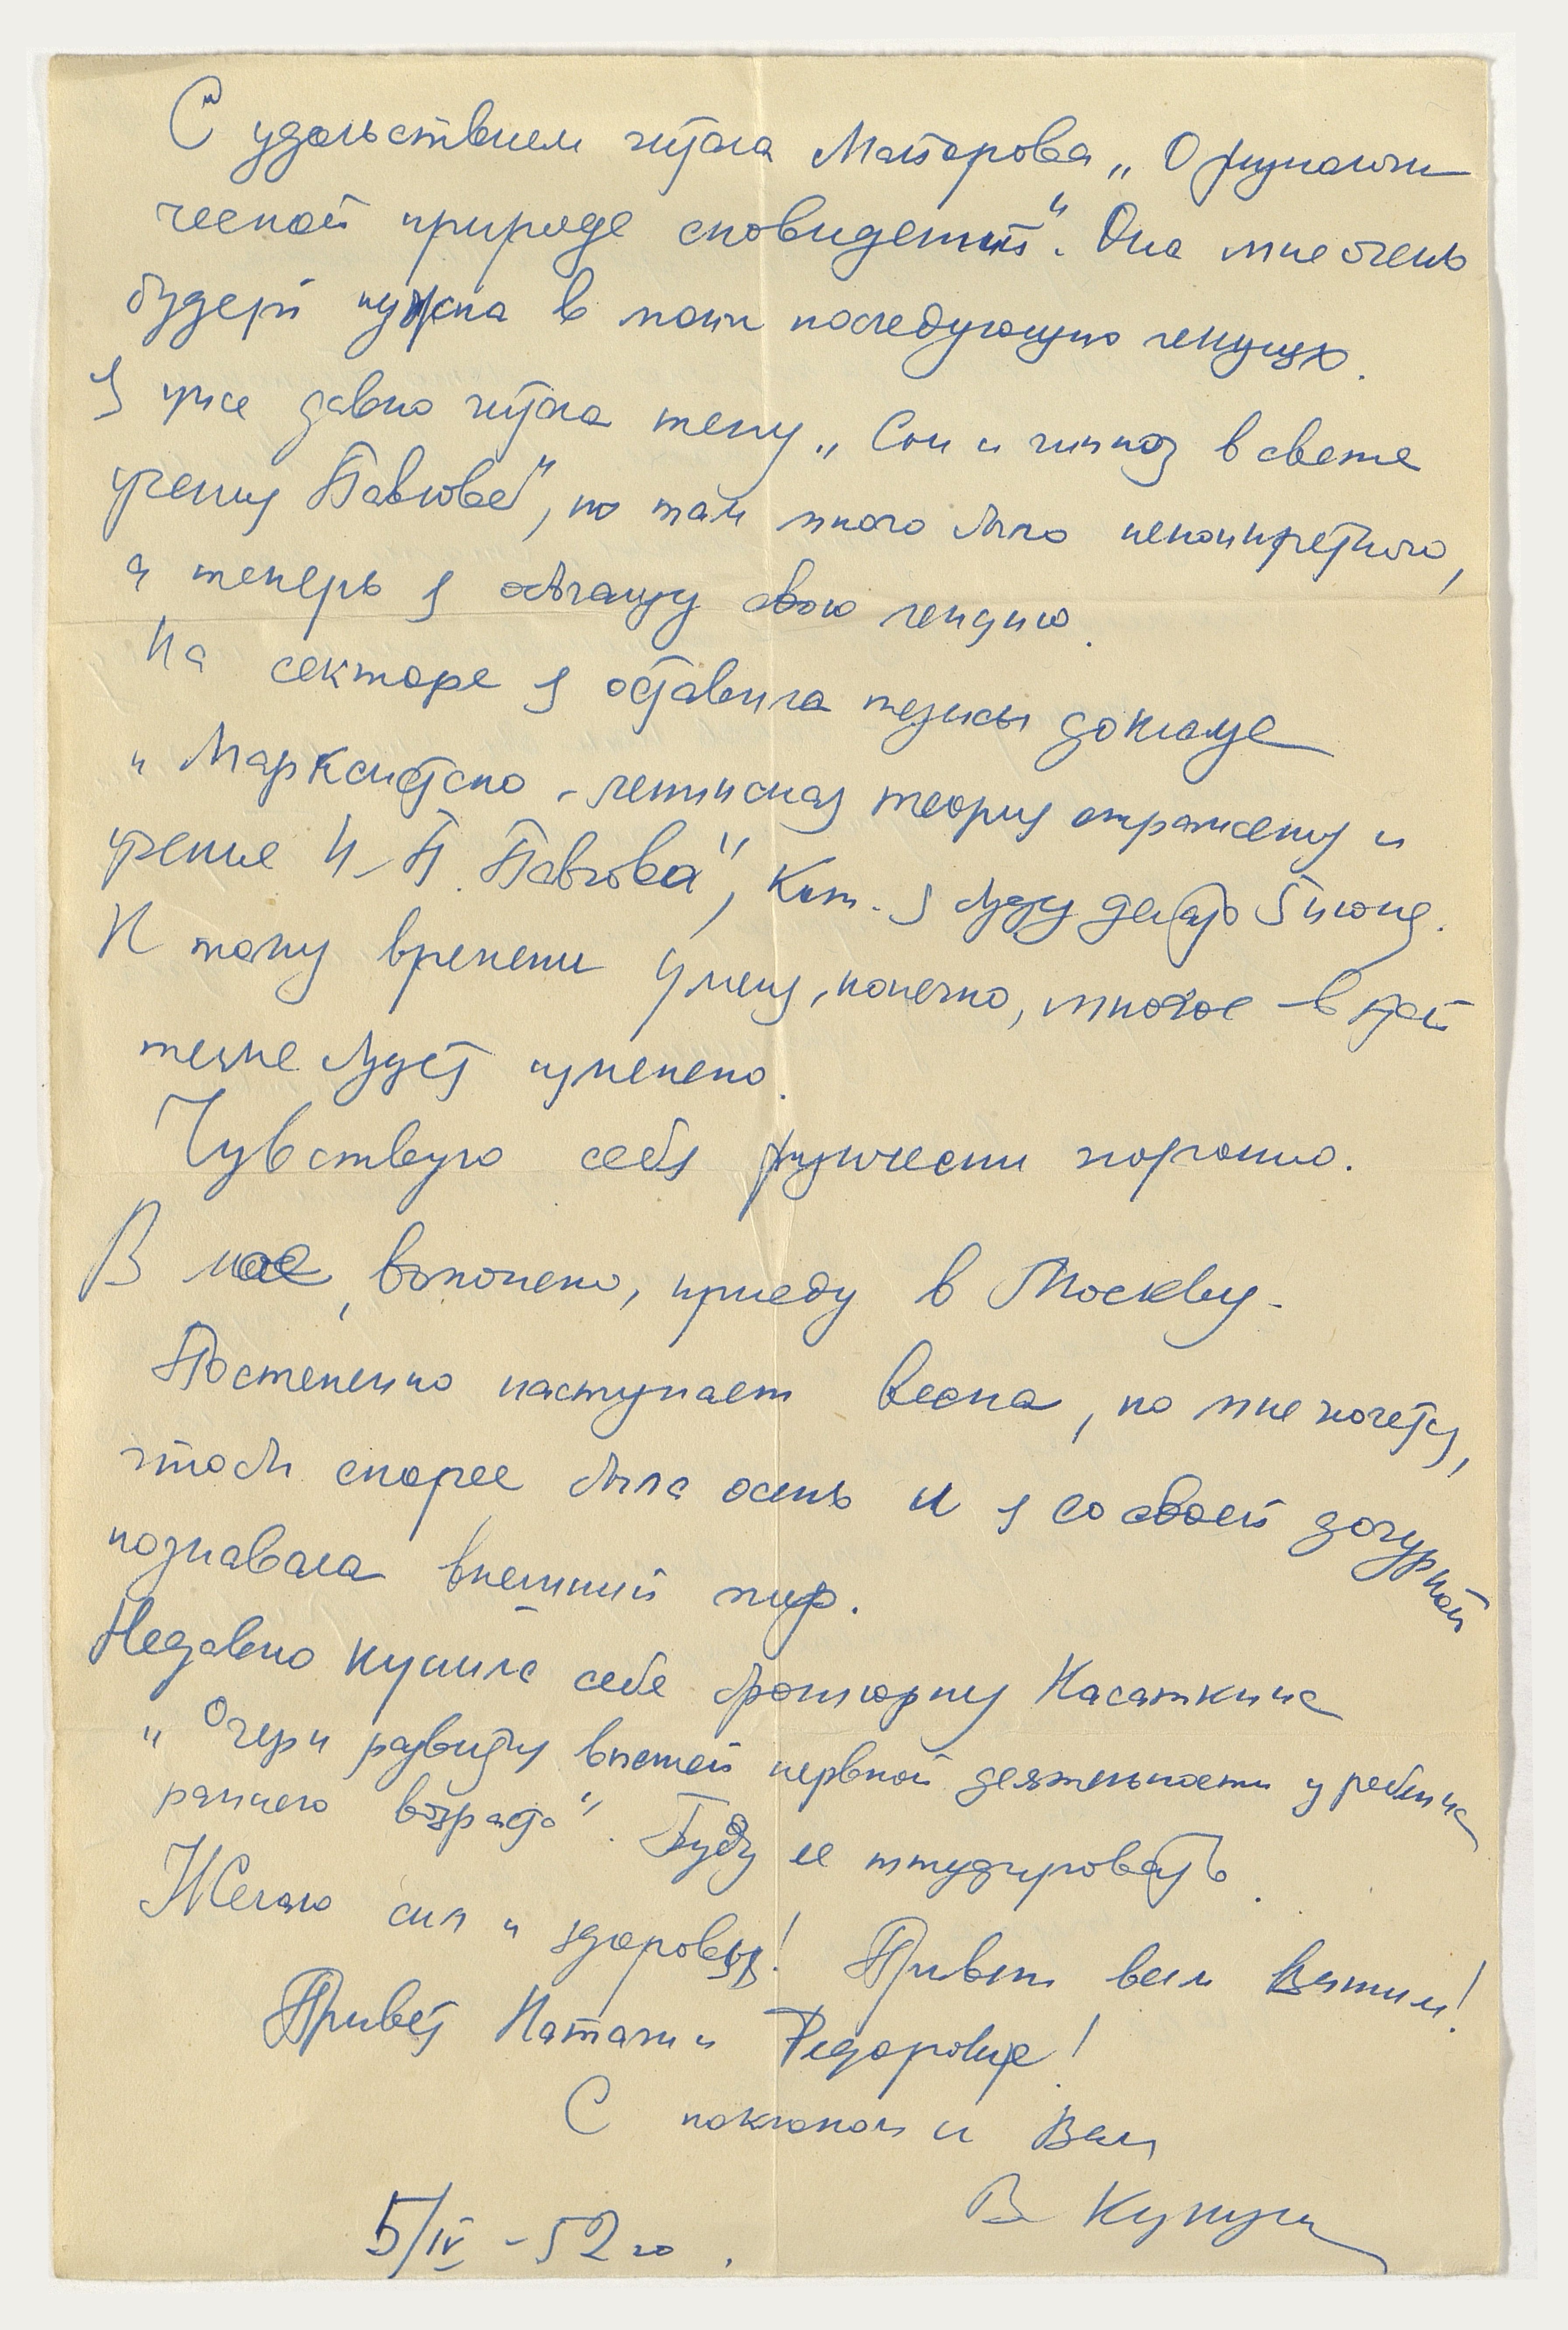 С удовольствием читала Майорова „О физиологи
ческой природе сновидений“. Она мне очень
будет нужна в моих последующих лекциях.
Я уже давно читала тему „Сон и гипноз в свете
учения Павлова“, но там много было неконкретного,
а теперь я обогащу свою лекцию.
На секторе я оставила тезисы доклада
„Марксистско-ленинская теория отражения и
учение И. П. Павлова“, кот. я буду делать 5 июня.
К тому времени у меня, конечно, многое в этой
теме будет изменено.
Чувствую себя физически хорошо.
В мае, возможно, приеду в Москву.
Постепенно наступает весна, но мне хочется,
чтобы скорее была осень и я со своей дочуркой
познавала внешний мир.
Недавно купила себе брошюрку Касаткина
„Очерк развития высшей нервной деятельности у ребенка
раннего возраста“. Буду ее штудировать.
Желаю сил и здоровья! Привет всем Вашим!
Привет Наталии Федоровне!
С поклоном к Вам
В.
5/IV - 52 го.